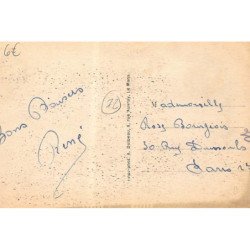 6€
Bons Baisers
René
72
Mademoiselle
Rose Bourgeois
30 Rue Dussoubs
Paris 2